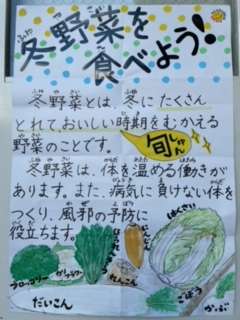 冬野菜を
食べよう!
冬野菜とは、冬にたくさん
とれて、おいしい時期をむかえる
野菜のことです。
旬
しゅん
冬野菜は、体を温める働きが
あります。また、病気に負けない体を
つくり、風邪の予防に
役立ちます。
はくさい
ブロッコリー
れんこん
ごぼう
だいこん
かぶ